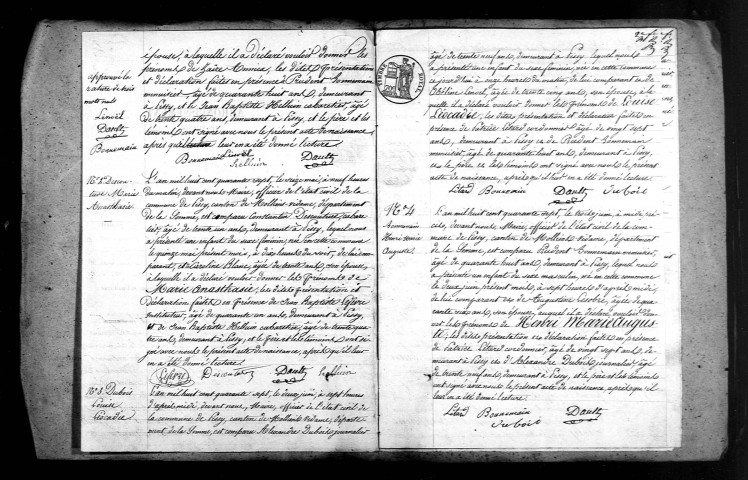 épouse, à laquelle il a déclaré vouloir donner les
prénoms de
et déclaration faites en présence de Prudent Bonnemain
âgé de quarante huit ans, demeurant
à Pissy, et de Jean Baptiste Helluin cabaretier, âgé
de trente quatre ans, demeurant à Pissy, et le père et les
témoins ont signé avec nous le présent acte de naissance,
après que lecture leur en a été donné lecture
Bonnemain Linoël
Helluin Dault
approuvé la
rature de trois
mots nuls
Linoël
Dault
Bonnemain
N° 2
Marie
Anasthasie
L'an mil huit cent quarante sept, le seize mai, à neuf heures
du matin, devant nous Maire, officier de l'état civil de la
commune de Pissy, canton de Molliens vidame, département
de la Somme, est comparu Constantin
âgé de trente un ans, demeurant à Pissy, lequel nous
a présenté un enfant du sexe féminin, né en cette commune
le quinze mai présent mois, à dix heures du soir, de lui com-
parant, et de Blanc, âgée de trente ans, son épouse,
à laquelle il a déclaré vouloir donner les prénoms de
Marie Anasthasie, les dites présentation et
déclaration faites en présence de Jean Baptiste Lefevre
instituteur, âgé de quarante un ans, demeurant à Pissy,
et de Jean Baptiste Helluin cabaretier, âgé de trente qua-
tre ans, demeurant à Pissy, et le père et les témoins ont si-
gné avec nous le présent acte de naissance, après que il leur
en a été donné lecture
Lefevre Dault Helluin
N° 3 Dubois
Louise
Léocadie
L'an mil huit cent quarante sept, le deux juin, à sept heures
d'après midi, devant nous, Maire, officier de l'état civil de
la commune de Pissy, canton de Molliens vidame, départe-
ment de la Somme, est comparu Alexandre Dubois journalier
âgé de trente neuf ans, demeurant à Pissy, lequel nous
a présenté un enfant du sexe féminin, né en cette commune
aujourd'hui à onze heures du matin, de lui comparant et de
Linoël, âgée de trente cinq ans, son épouse, à la-
quelle il a déclaré vouloir donner les prénoms de Louise
Léocadie, les dites présentation et déclaration faites en
présence de cordonnier, âgé de vingt sept
ans, demeurant à Pissy et de Prudent Bonnemain
âgé de quarante huit ans, demeurant à Pissy,
et le père et les témoins ont signé avec nous le présent
acte de naissance, après qu'il leur en a été donné lecture.
Bonnemain Dault Dubois
N° 4
Bonnemain
Henri Marie
Auguste
L'an mil huit cent quarante sept, le trois juin, à midi pré-
cis, devant nous Maire, officier de l'état civil de la com-
mune de Pissy, canton de Molliens vidame, département
de la Somme, est comparu Prudent Bonnemain
âgé de quarante huit ans, demeurant à Pissy, lequel nous
a présenté un enfant du sexe masculin, né en cette commune
le deux juin présent mois, à sept heures d'après midi
de lui comparant et de Augustine âgée de qua-
rante ans, son épouse, auquel il a déclaré vouloir don-
ner les prénoms de Henri Marie Augus-
te, les dites présentation et déclaration faites en présence
de cordonnier, âgé de vingt sept ans, de-
meurant à Pissy et d'Alexandre Dubois journalier, âgé
de trente neuf ans, demeurant à Pissy, et le père et les témoins
ont signé avec nous le présent acte de naissance, après qu'il
leur en a été donné lecture.
Bonnemain Dault
Dubois